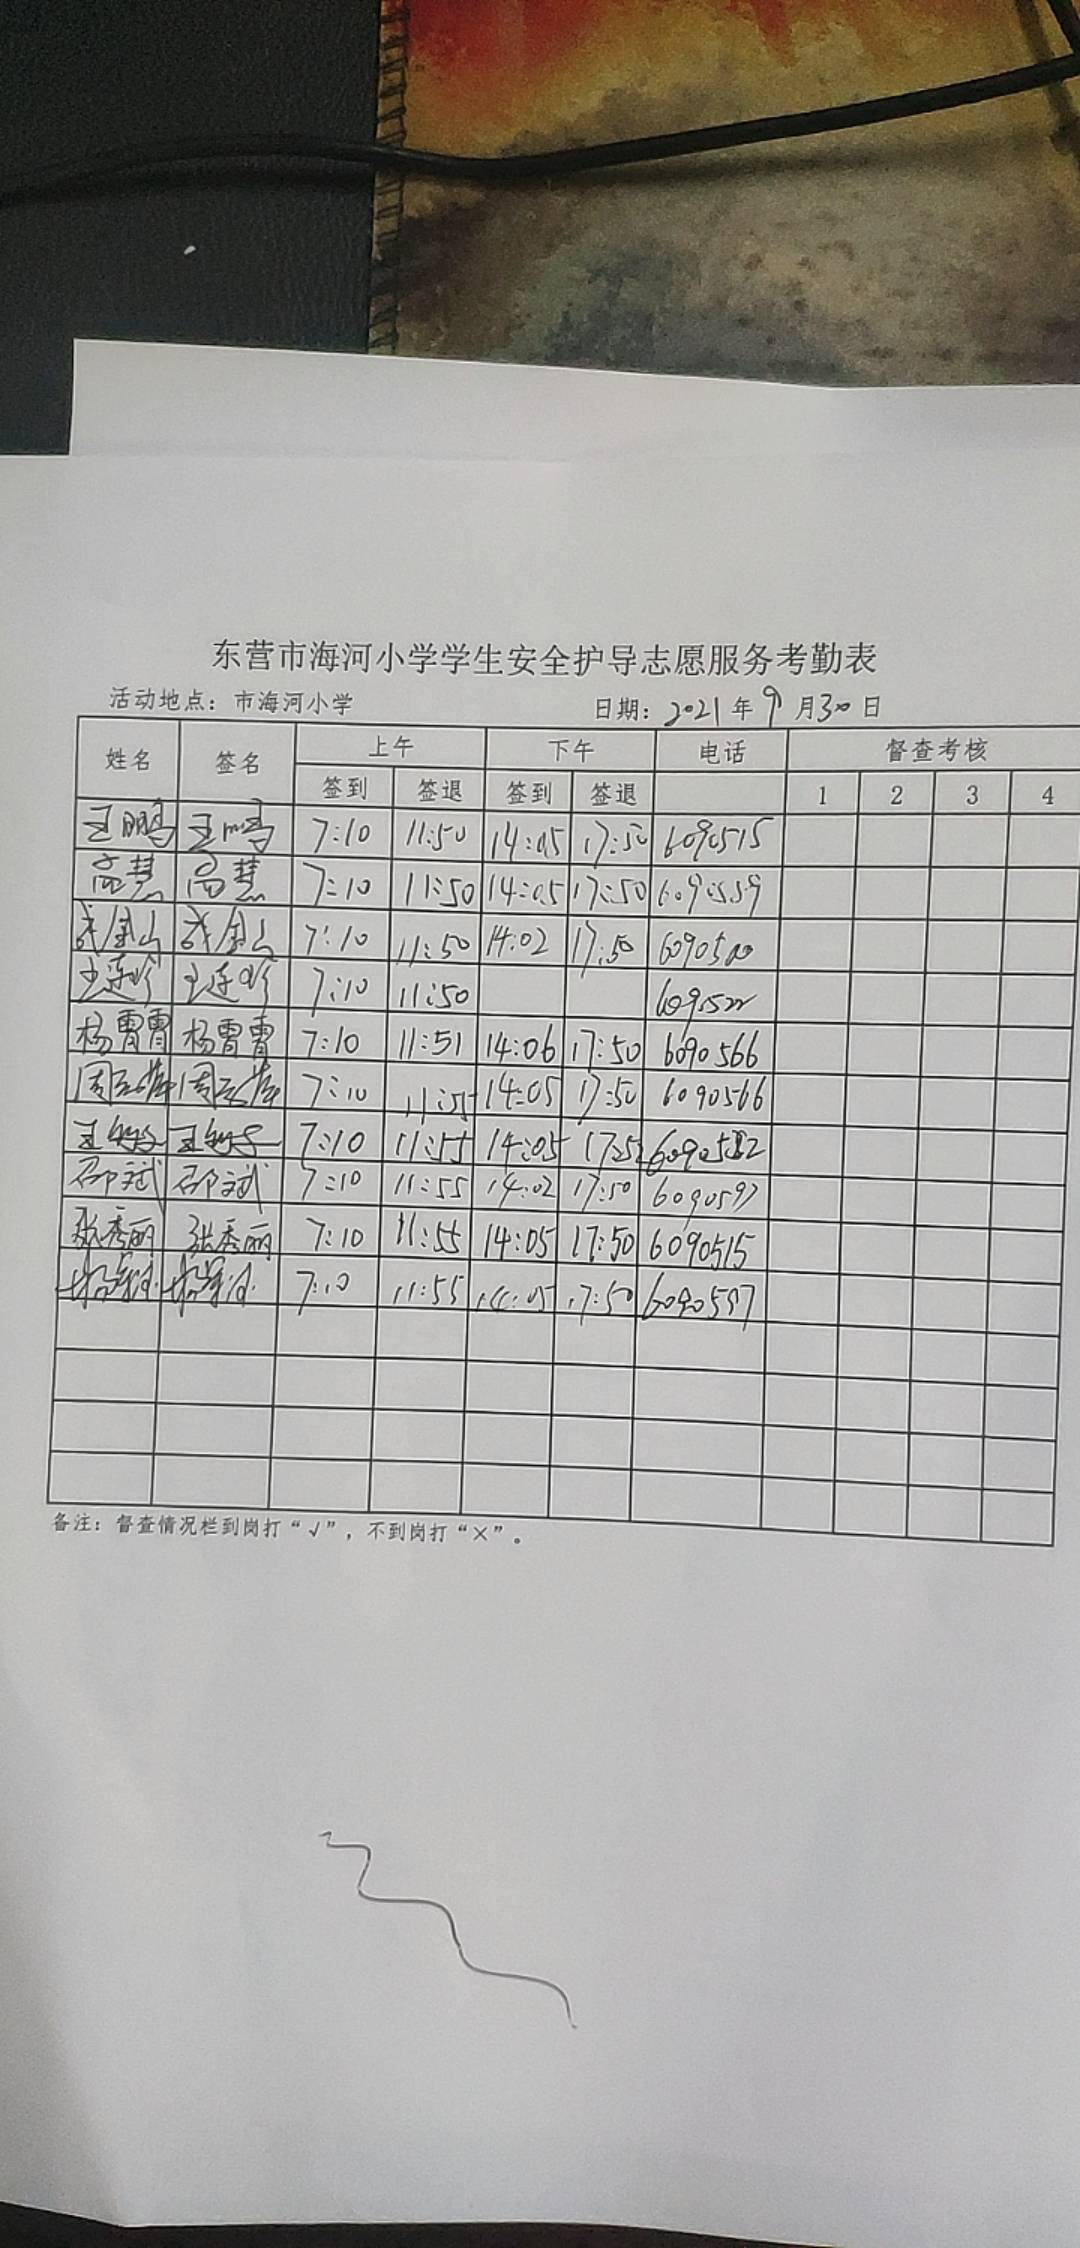 东营市海河小学学生安全护导志愿服务考勤表
活动地点：市海河小学 日期：2021年9月30日
姓名 签名 上午 下午 电话 督查考核
签到 签退 签到 签退 1 2 3 4
王鹏 王鹏 7:10 11:50 14:05 17:50 6090515
高慧 高慧 7:10 11:50 14:05 17:50 6090559
7:10 11:50 14:02 17:50 6090500
王连珍 王连珍 7:10 11:50 6090522
杨霄霄 杨霄霄 7:10 11:51 14:06 17:50 6090566
7:10 11:55 14:05 17:50 6090566
7:10 11:55 14:05
邵斌 邵斌 7:10 11:55 14:02 17:50 6090597
张秀丽 张秀丽 7:10 11:55 14:05 17:50 6090515
7:10 11:55 14:05 17:50 6090597
备注：督查情况栏到岗打“√”，不到岗打“×”。